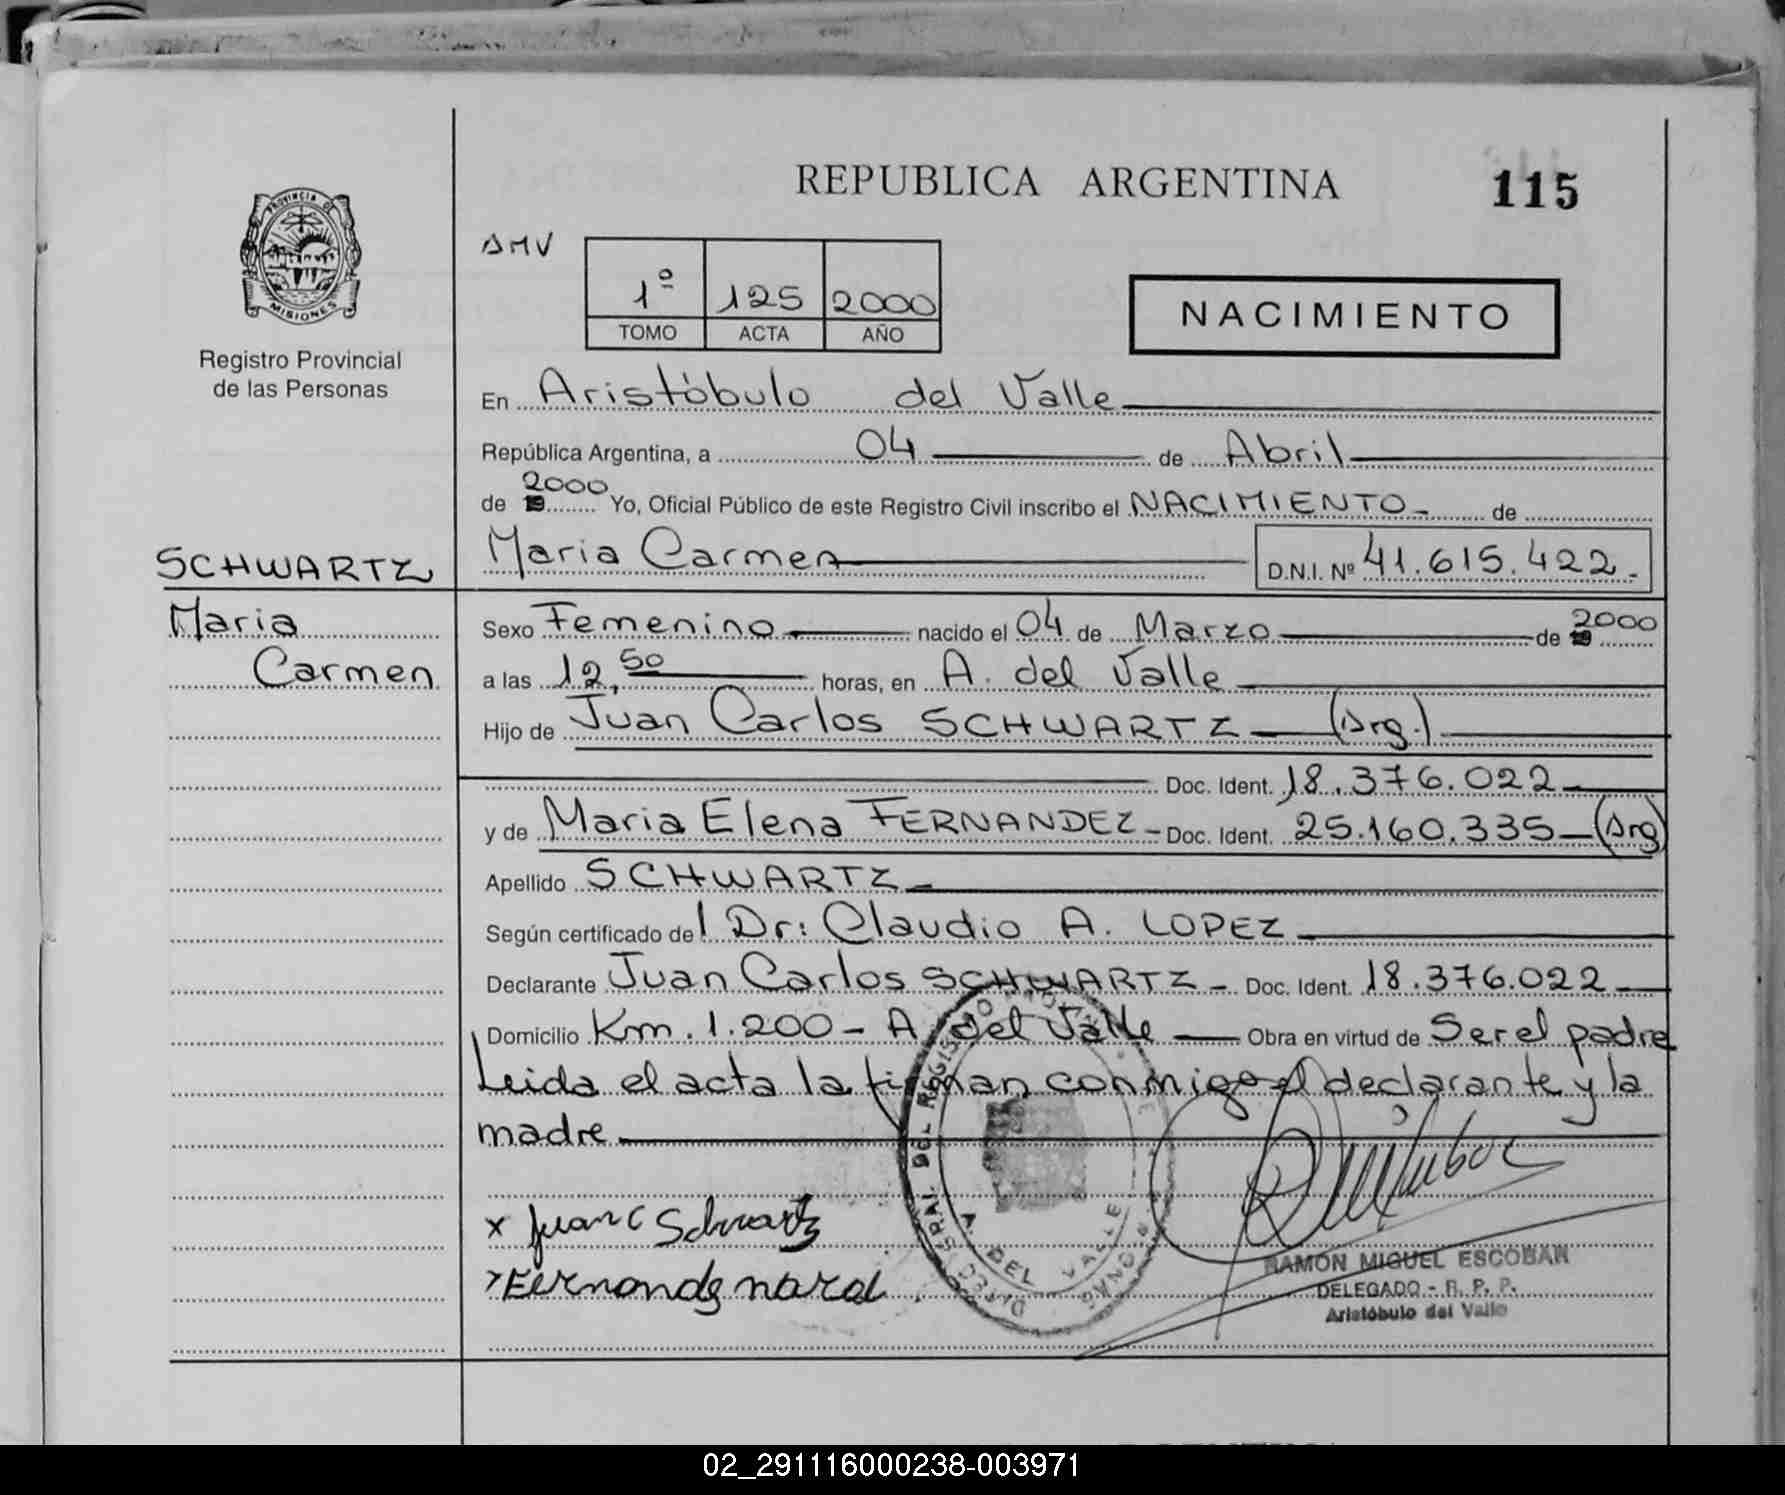 REPUBLICA ARGENTINA
115
PROVINCIA DE
MISIONES
Registro Provincial
de las Personas
AMV
1º 125 2000
TOMO ACTA AÑO
NACIMIENTO
En Aristóbulo del Valle
República Argentina, a 04 de Abril
de 2000 Yo, Oficial Público de este Registro Civil inscribo el NACIMIENTO de
Maria Carmen D.N.I. Nº 41.615.422.-
SCHWARTZ
Maria
Carmen
Sexo Femenino nacido el 04 de Marzo de 2000
a las 12,50 horas, en A. del Valle
Hijo de Juan Carlos SCHWARTZ (Arg.)
Doc. Ident. 18.376.022
y de Maria Elena FERNANDEZ - Doc. Ident. 25.160.335 (Arg)
Apellido SCHWARTZ
Según certificado del Dr: Claudio A. LOPEZ
Declarante Juan Carlos SCHWARTZ - Doc. Ident. 18.376.022
Domicilio Km. 1.200 - A. del Valle Obra en virtud de Ser el padre
Leida el acta la firman conmigo el declarante y la
madre
x Juan C Schwartz
RAMON MIGUEL ESCOBAR
DELEGADO - R. P. P.
Aristóbulo del Valle
A. DEL VALLE
02_291116000238-003971